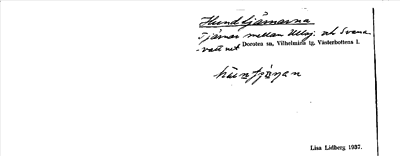 Hundtjärnarna
Tjärnar mellan och Svana-
-vattnet Dorotea sn, Vilhelmina tg, Västerbottens l.
Lisa Lidberg 1937.